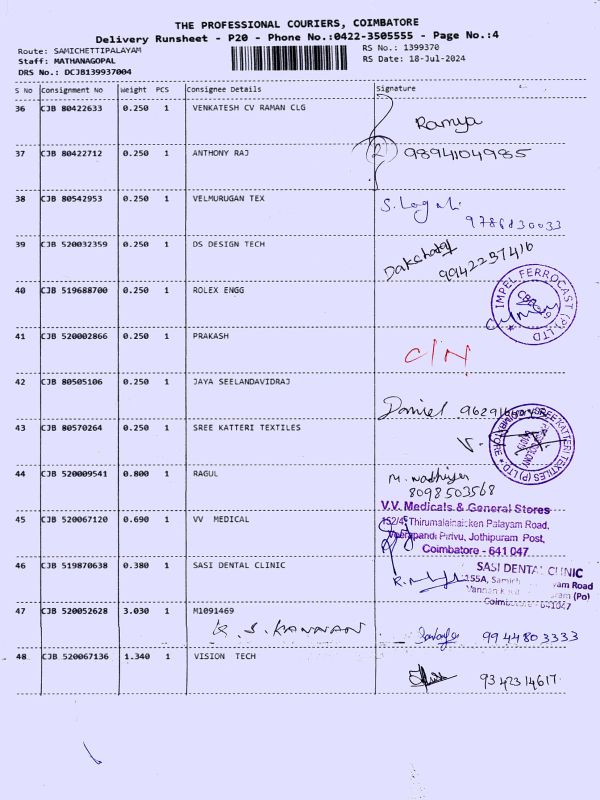 THE PROFESSIONAL COURIERS, COIMBATORE
Delivery Runsheet - P20 - Phone No.:0422-3505555 - Page No.:4
Route: SAMICHETTIPALAYAM RS No.: 1399370
Staff: MATHANAGOPAL RS Date: 18-Jul-2024
DRS No.: DCJB139937004
S No Consignment No Weight PCS Consignee Details Signature
36 CJB 80422633 0.250 1 VENKATESH CV RAMAN CLG Ramya
37 CJB 80422712 0.250 1 ANTHONY RAJ 2 9894104985
38 CJB 80542953 0.250 1 VELMURUGAN TEX S.
39 CJB 520032359 0.250 1 DS DESIGN TECH 9942237416
40 CJB 519688700 0.250 1 ROLEX ENGG
IMPEL FERROCAST (P) LTD
41 CJB 520002866 0.250 1 PRAKASH C/N
42 CJB 80505106 0.250 1 JAYA SEELANDAVIDRAJ
Daniel
43 CJB 80570264 0.250 1 SREE KATTERI TEXTILES V.
SREE KATTERI TEXTILES (P) LTD.
44 CJB 520009541 0.800 1 RAGUL
8098503568
45 CJB 520067120 0.690 1 VV MEDICAL
V.V. Medicals & General Stores
152/4, Thirumalainaicken Palayam Road,
Veerapandi Pirivu, Jothipuram Post,
Coimbatore - 641 047
46 CJB 519870638 0.380 1 SASI DENTAL CLINIC
SASI DENTAL CLINIC
47 CJB 520052628 3.030 1 M1091469
K. S. KANNAN 9944803333
48 CJB 520067136 1.340 1 VISION TECH
9342314617